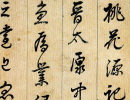 桃花源記
晉太原中
魚爲業
之遠近忽